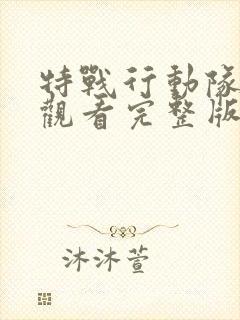 特戰行動隊
觀看完整版
沐沐萱